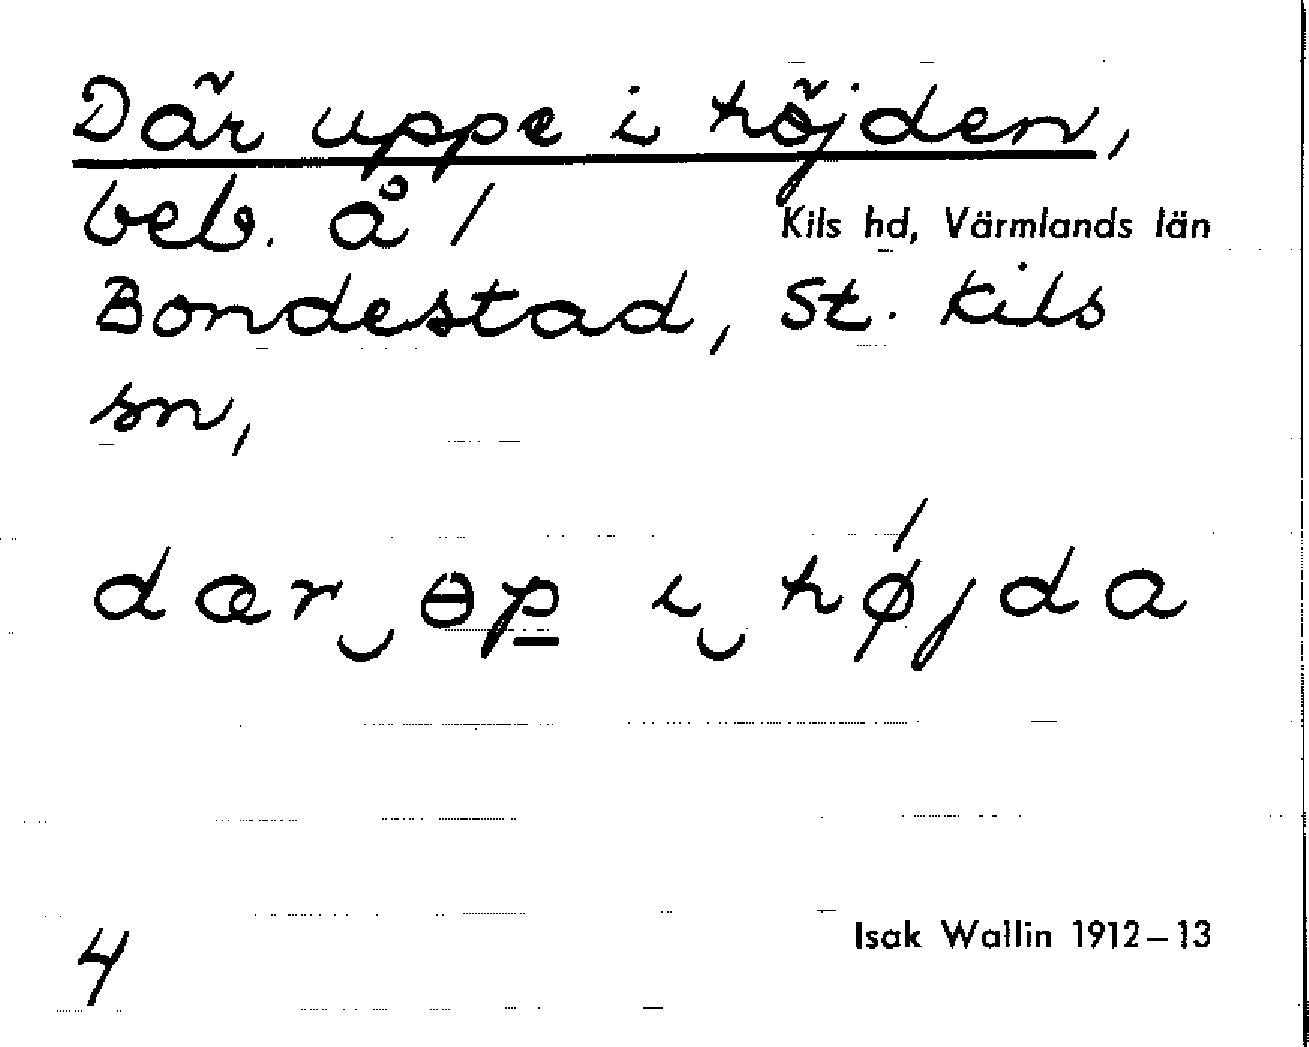 Där uppe i höjden,
beb. å /
Kils hd, Värmlands län
Bondestad, St. Kils
sn,
dær‿ɵp i‿hǿjda
4
Isak Wallin 1912–13